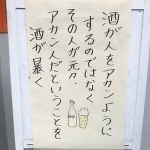 酒が人をアカンように
するのではなく
その人が元々
アカン人だということを
酒が暴く